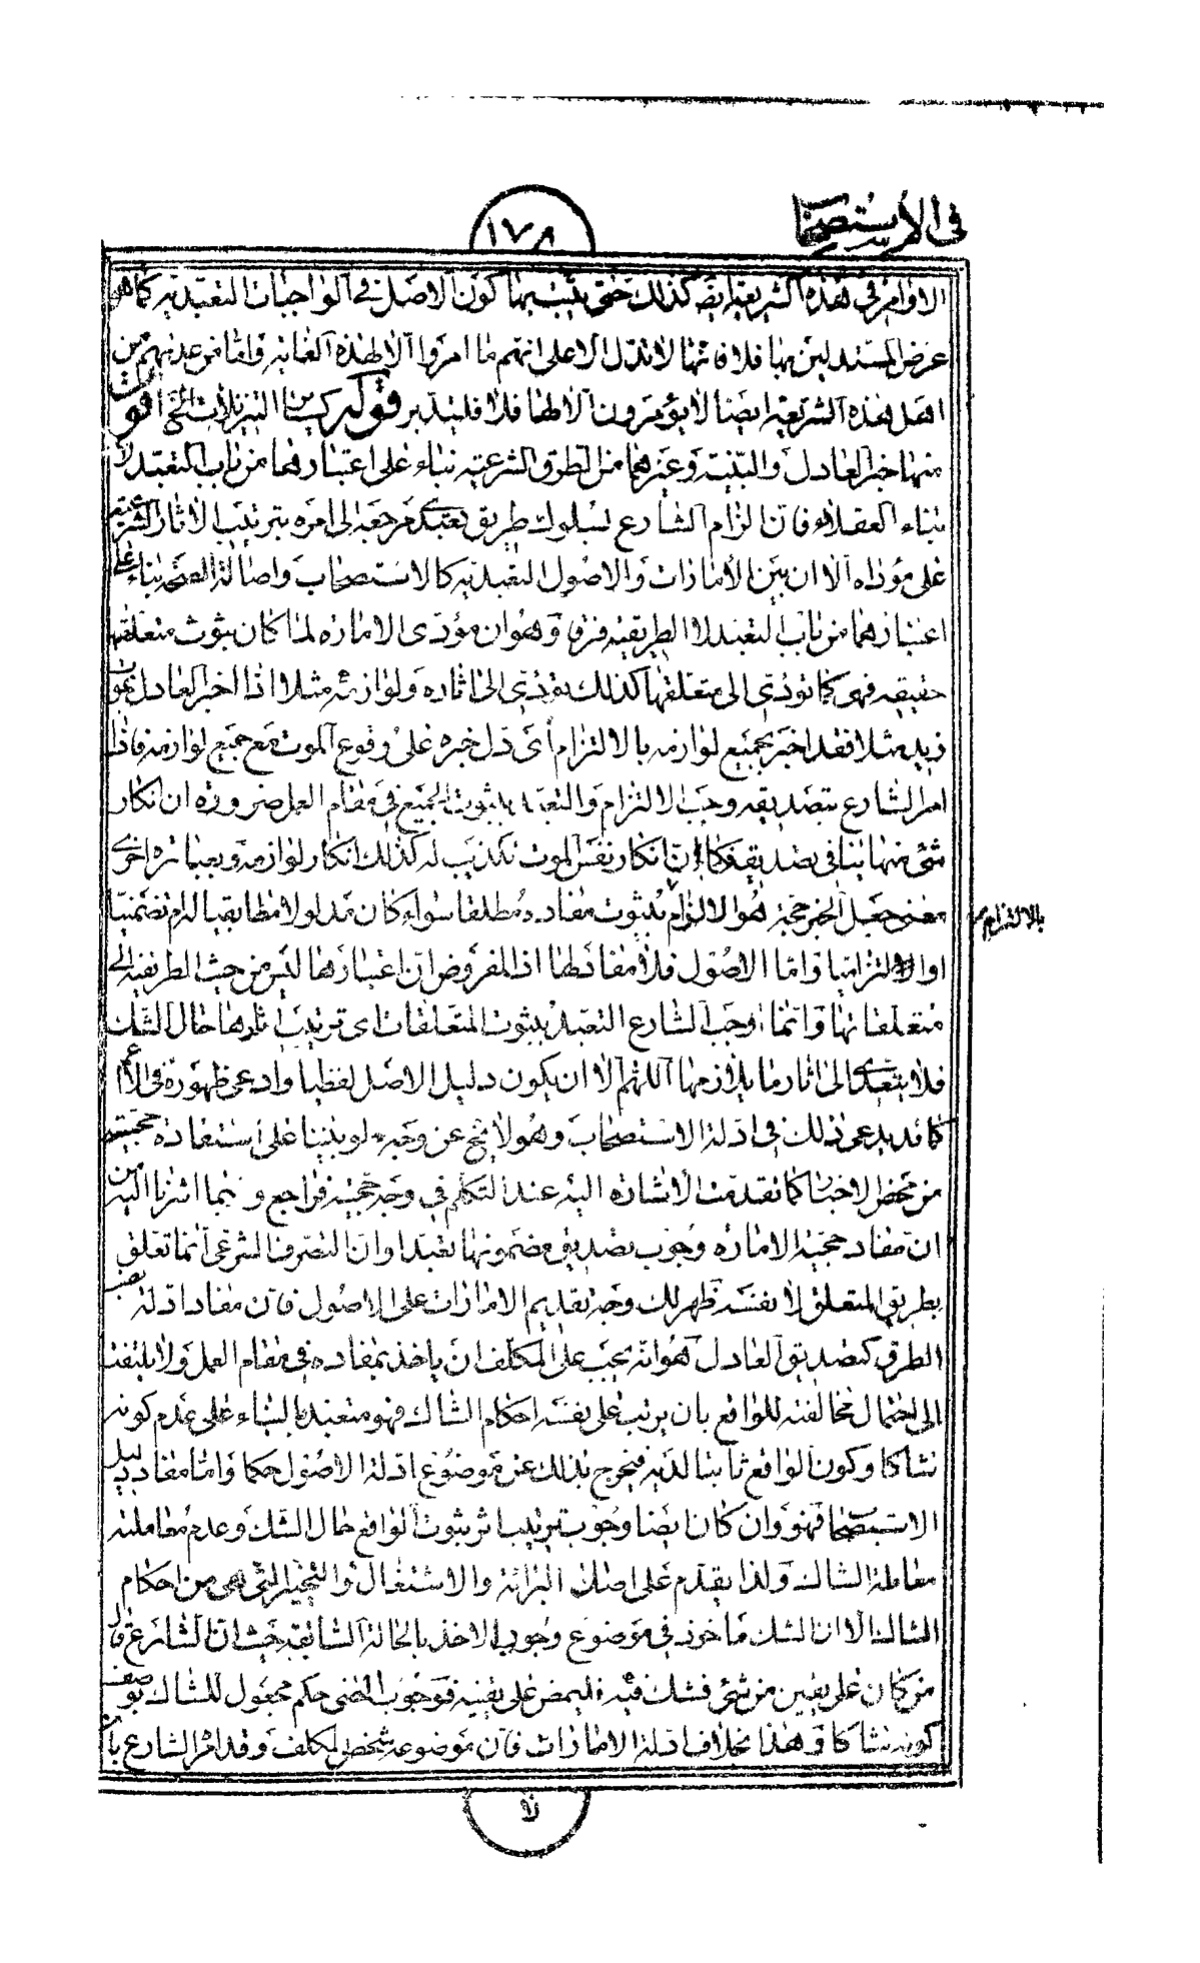 في الاستصحاب
١٧٨
الاوامر في هذه الشريعة ايضا كذلك حتى يثبت بها كون الاصل في الواجبات التعبدية كما هو
غرض المستدلين بها فلا فانها لا تدل الا على انهم ما امروا الا لهذه الغاية واما من عداهم من
اهل هذه الشريعة ايضا لا يؤمرون الا لها فلا فليتدبر قوله كسائر التنزيلات الخ اقول
منها خبر العادل والبينة وغيرهما من الطرق الشرعية بناء على اعتبارهما من باب التعبد لا
بناء العقلاء فان الزام الشارع بسلوك طريق تعبدى مرجعه الى امره بترتيب الاثار الشرعية
على مؤداه الا ان بين الأمارات والاصول التعبدية كالاستصحاب واصالة الصحة بناء على
اعتبارهما من باب التعبد لا الطريقية فرق وهو ان مؤدى الامارة لما كان ثبوت متعلقها
حقيقة فهى كما تؤدى الى متعلقها كذلك تؤدى الى اثاره ولوازمه مثلا اذا اخبر العادل بموت
زيد مثلا فقد اخبر بجميع لوازمه بالالتزام أى دل خبره على وقوع الموت مع جميع لوازمه فاذا
امر الشارع بتصديقه وجب الالتزام والتعبد بثبوت الجميع في مقام العمل ضرورة ان انكار
شئ منها ينافى تصديقه فكما ان انكار نفس الموت تكذيب له كذلك انكار لوازمه وبعبارة اخرى
معنى جعل الخبر حجة هو الالزام بثبوت مفاده مطلقا سواء كان مدلولا مطابقيا له ام تضمنيا
بالالتزام
او التزاميا واما الاصول فلا مفاد لها اذ المفروض ان اعتبارها ليس من حيث الطريقية الى
متعلقاتها وانما اوجب الشارع التعبد بثبوت المتعلقات اى ترتيب اثارها حال الشك
فلا يتعدى الى اثار ما يلازمها اللهم الا ان يكون دليل الاصل لفظيا وادعى ظهوره في الاعم
كما قد يدعى ذلك في ادلة الاستصحاب وهو لا يخ عن وجه لو بنينا على استفادة حجيته
من محض الاخبار كما تقدمت الاشارة اليه عند التكلم في وجه حجيته فراجع وبما اشرنا اليه من
ان مفاد حجية الامارة وجوب تصديق مضمونها تعبدا وان التصرف الشرعى انما تعلق
بطريق المتعلق لا بنفسه ظهر لك وجه تقديم الامارات على الاصول فان مفاد ادلة نصب
الطرق كتصديق العادل هو انه يجب على المكلف ان ياخذ بمفاده في مقام العمل ولا يلتفت
الى احتمال مخالفته للواقع بان يرتب على نفسه احكام الشاك فهو متعبد بالبناء على عدم كونه
شاكا وكون الواقع ثابتا لديه فيخرج بذلك عن موضوع ادلة الاصول حكما واما مفاد دليل
الاستصحاب فهو وان كان ايضا وجوب ترتيب اثر ثبوت الواقع حال الشك وعدم معاملته
معاملة الشاك ولذا يقدم على اصل البرائة والاشتغال والتخيير التى هى من احكام
الشاك الا ان الشك مأخوذ في موضوع وجوب الاخذ بالحالة السابقة حيث ان الشارع قال
من كان على يقين من شئ فشك فيه فليمض على يقينه فوجوب المضى حكم مجعول للشاك بوصف
كونه شاكا وهذا بخلاف ادلة الامارات فان موضوعه شخص المكلف وقد امر الشارع بان
لا